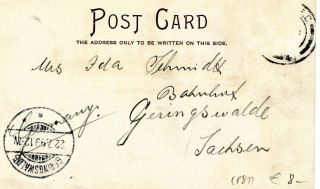 POST CARD
THE ADDRESS ONLY TO BE WRITTEN ON THIS SIDE.
Mrs Ida Schmidt
Bahnhof
Geringswalde
Sachsen
GERINGSWALDE
22.7.99.12-1N
€ 8-